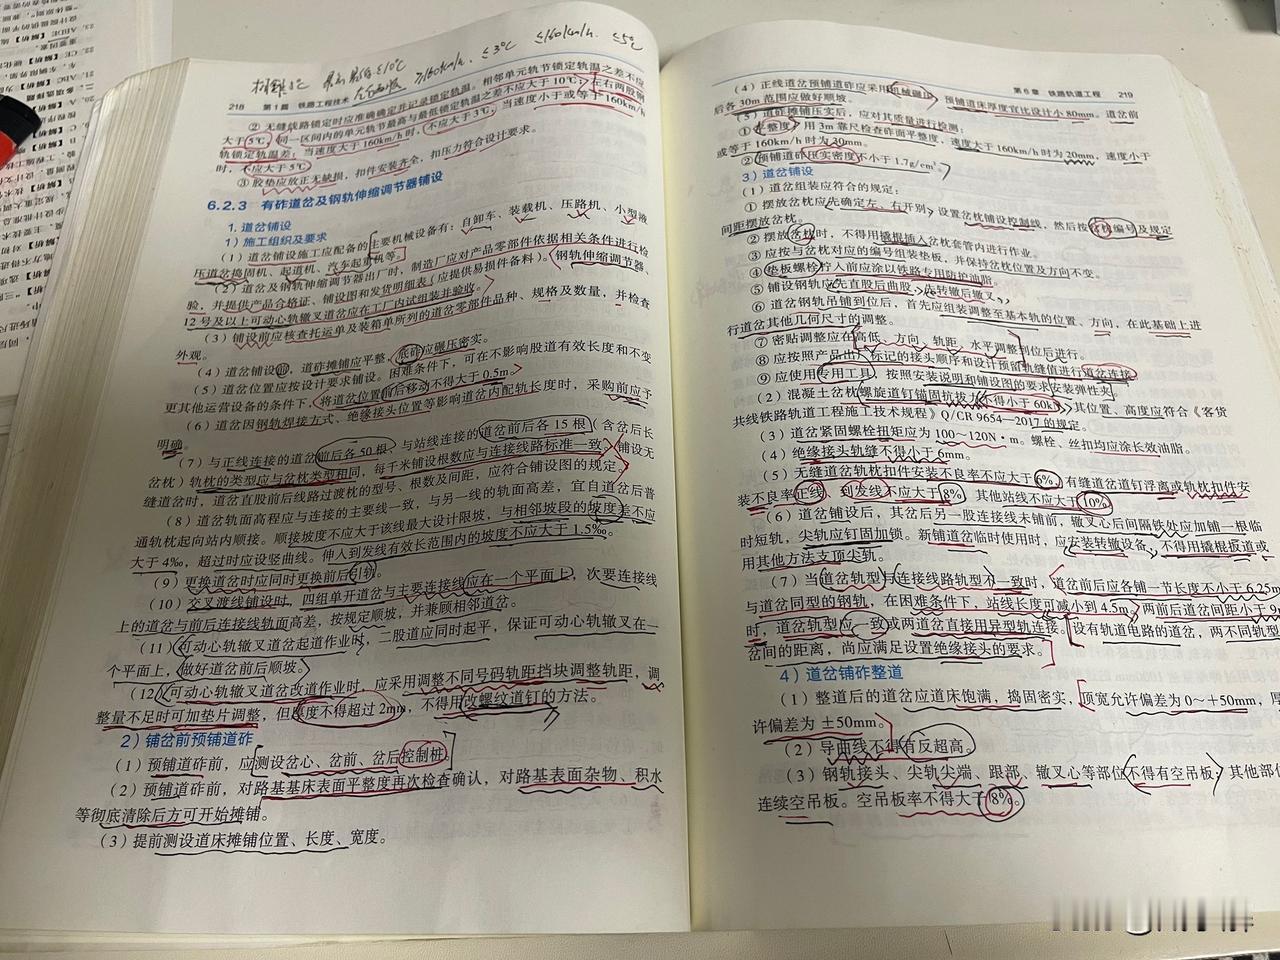 相邻≤5℃ 最高最低≤10℃
左右两股 >160km/h. ≤3℃ ≤160km/h. ≤5℃
218 第1篇 铁路工程技术
② 无缝线路锁定时应准确确定并记录锁定轨温。相邻单元轨节锁定轨温之差不应
大于5℃,同一区间内的单元轨节最高与最低锁定轨温之差不应大于10℃;左右两股钢
轨锁定轨温差:当速度大于160km/h时,不应大于3℃,当速度小于或等于160km/h
时,不应大于5℃。
③ 胶垫应放正无缺损,扣件安装齐全,扣压力符合设计要求。
6.2.3 有砟道岔及钢轨伸缩调节器铺设
1. 道岔铺设
1)施工组织及要求
(1)道岔铺设施工应配备的主要机械设备有:自卸车、装载机、压路机、小型液
压道岔捣固机、起道机、汽车起重机等。
(2)道岔及钢轨伸缩调节器出厂时,制造厂应对产品零部件依据相关条件进行检
验,并提供产品合格证、铺设图和发货明细表(应提供易损件备料)。钢轨伸缩调节器、
12号及以上可动心轨辙叉道岔应在工厂内试组装并验收。
(3)铺设前应核查托运单及装箱单所列的道岔零部件品种、规格及数量,并检查
外观。
(4)道岔铺设前,道砟摊铺应平整,底砟应碾压密实。
(5)道岔位置应按设计要求铺设。困难条件下,可在不影响股道有效长度和不变
更其他运营设备的条件下,将道岔位置前后移动不得大于0.5m。
(6)道岔因钢轨焊接方式、绝缘接头位置等影响道岔内配轨长度时,采购前应予
明确。
(7)与正线连接的道岔前后各50根、与站线连接的道岔前后各15根(含岔后长
岔枕)轨枕的类型应与岔枕类型相同,每千米铺设根数应与连接线路标准一致。铺设无
缝道岔时,道岔直股前后线路过渡枕的型号、根数及间距,应符合铺设图的规定。
(8)道岔轨面高程应与连接的主要线一致,与另一线的轨面高差,宜自道岔后普
通轨枕起向站内顺接。顺接坡度不应大于该线最大设计限坡,与相邻坡段的坡度差不应
大于4‰,超过时应设竖曲线。伸入到发线有效长范围内的坡度不应大于1.5‰。
(9)更换道岔时应同时更换前后引轨。
(10)交叉渡线铺设时,四组单开道岔与主要连接线应在一个平面上,次要连接线
上的道岔与前后连接线轨面高差,按规定顺坡,并兼顾相邻道岔。
(11)可动心轨辙叉道岔起道作业时,二股道应同时起平,保证可动心轨辙叉在一
个平面上,做好道岔前后顺坡。
(12)可动心轨辙叉道岔改道作业时,应采用调整不同号码轨距挡块调整轨距,调
整量不足时可加垫片调整,但厚度不得超过2mm,不得用改螺纹道钉的方法。
2)铺岔前预铺道砟
(1)预铺道砟前,应测设岔心、岔前、岔后控制桩。
(2)预铺道砟前,对路基基床表面平整度再次检查确认,对路基表面杂物、积水
等彻底清除后方可开始摊铺。
(3)提前测设道床摊铺位置、长度、宽度。
第6章 铁路轨道工程 219
(4)正线道岔预铺道砟应采用机械碾压,预铺道床厚度宜比设计小80mm。道岔前
后各30m范围应做好顺坡。
(5)道砟摊铺压实后,应对其质量进行检测:
① 平整度:用3m靠尺检查砟面平整度,速度大于160km/h时为20mm,速度小于
或等于160km/h时为30mm。
② 预铺道砟压实密度不小于1.7g/cm³。
3)道岔铺设
(1)道岔组装应符合的规定:
① 摆放岔枕应先确定左、右开别,设置岔枕铺设控制线,然后按岔枕编号及规定
间距摆放岔枕。
② 摆放岔枕时,不得用撬棍插入岔枕套管内进行作业。
③ 应按与岔枕对应的编号组装垫板,并保持岔枕位置及方向不变。
④ 垫板螺栓拧入前应涂以铁路专用防护油脂。
⑤ 铺设钢轨应先直股后曲股、先转辙后辙叉。
⑥ 道岔钢轨吊铺到位后,首先应组装调整至基本轨的位置、方向,在此基础上进
行道岔其他几何尺寸的调整。
⑦ 密贴调整应在高低、方向、轨距、水平调整到位后进行。
⑧ 应按照产品出厂标记的接头顺序和设计预留轨缝值进行道岔连接。
⑨ 应使用专用工具,按照安装说明和铺设图的要求安装弹性夹。
(2)混凝土岔枕螺旋道钉锚固抗拔力不得小于60kN,其位置、高度应符合《客货
共线铁路轨道工程施工技术规程》Q/CR 9654—2017的规定。
(3)道岔紧固螺栓扭矩应为100~120N·m。螺栓、丝扣均应涂长效油脂。
(4)绝缘接头轨缝不得小于6mm。
(5)无缝道岔轨枕扣件安装不良率不应大于6%,有缝道岔道钉浮离或轨枕扣件安
装不良率正线、到发线不应大于8%,其他站线不应大于10%。
(6)道岔铺设后,其岔后另一股连接线未铺前,辙叉心后间隔铁处应加铺一根临
时短轨,尖轨应钉固加锁。新铺道岔临时使用时,应安装转辙设备,不得用撬棍扳道或
用其他方法支顶尖轨。
(7)当道岔轨型与连接线路轨型不一致时,道岔前后应各铺一节长度不小于6.25m
与道岔同型的钢轨,在困难条件下,站线长度可减小到4.5m。两前后道岔间距小于9m
时,道岔轨型应一致或两道岔直接用异型轨连接。设有轨道电路的道岔,两不同轨型
岔间的距离,尚应满足设置绝缘接头的要求。
4)道岔铺砟整道
(1)整道后的道岔应道床饱满,捣固密实,顶宽允许偏差为0~+50mm,厚
许偏差为±50mm。
(2)导曲线不得有反超高。
(3)钢轨接头、尖轨尖端、跟部、辙叉心等部位不得有空吊板,其他部位
连续空吊板。空吊板率不得大于8%。